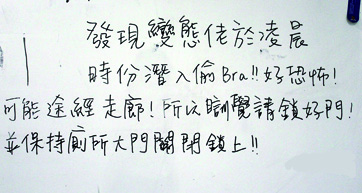 發現變態佬於凌晨
時份潛入偷Bra!!好恐怖!
可能途經走廊!所以瞓覺請鎖好門!
並保持廁所大門關閉鎖上!!